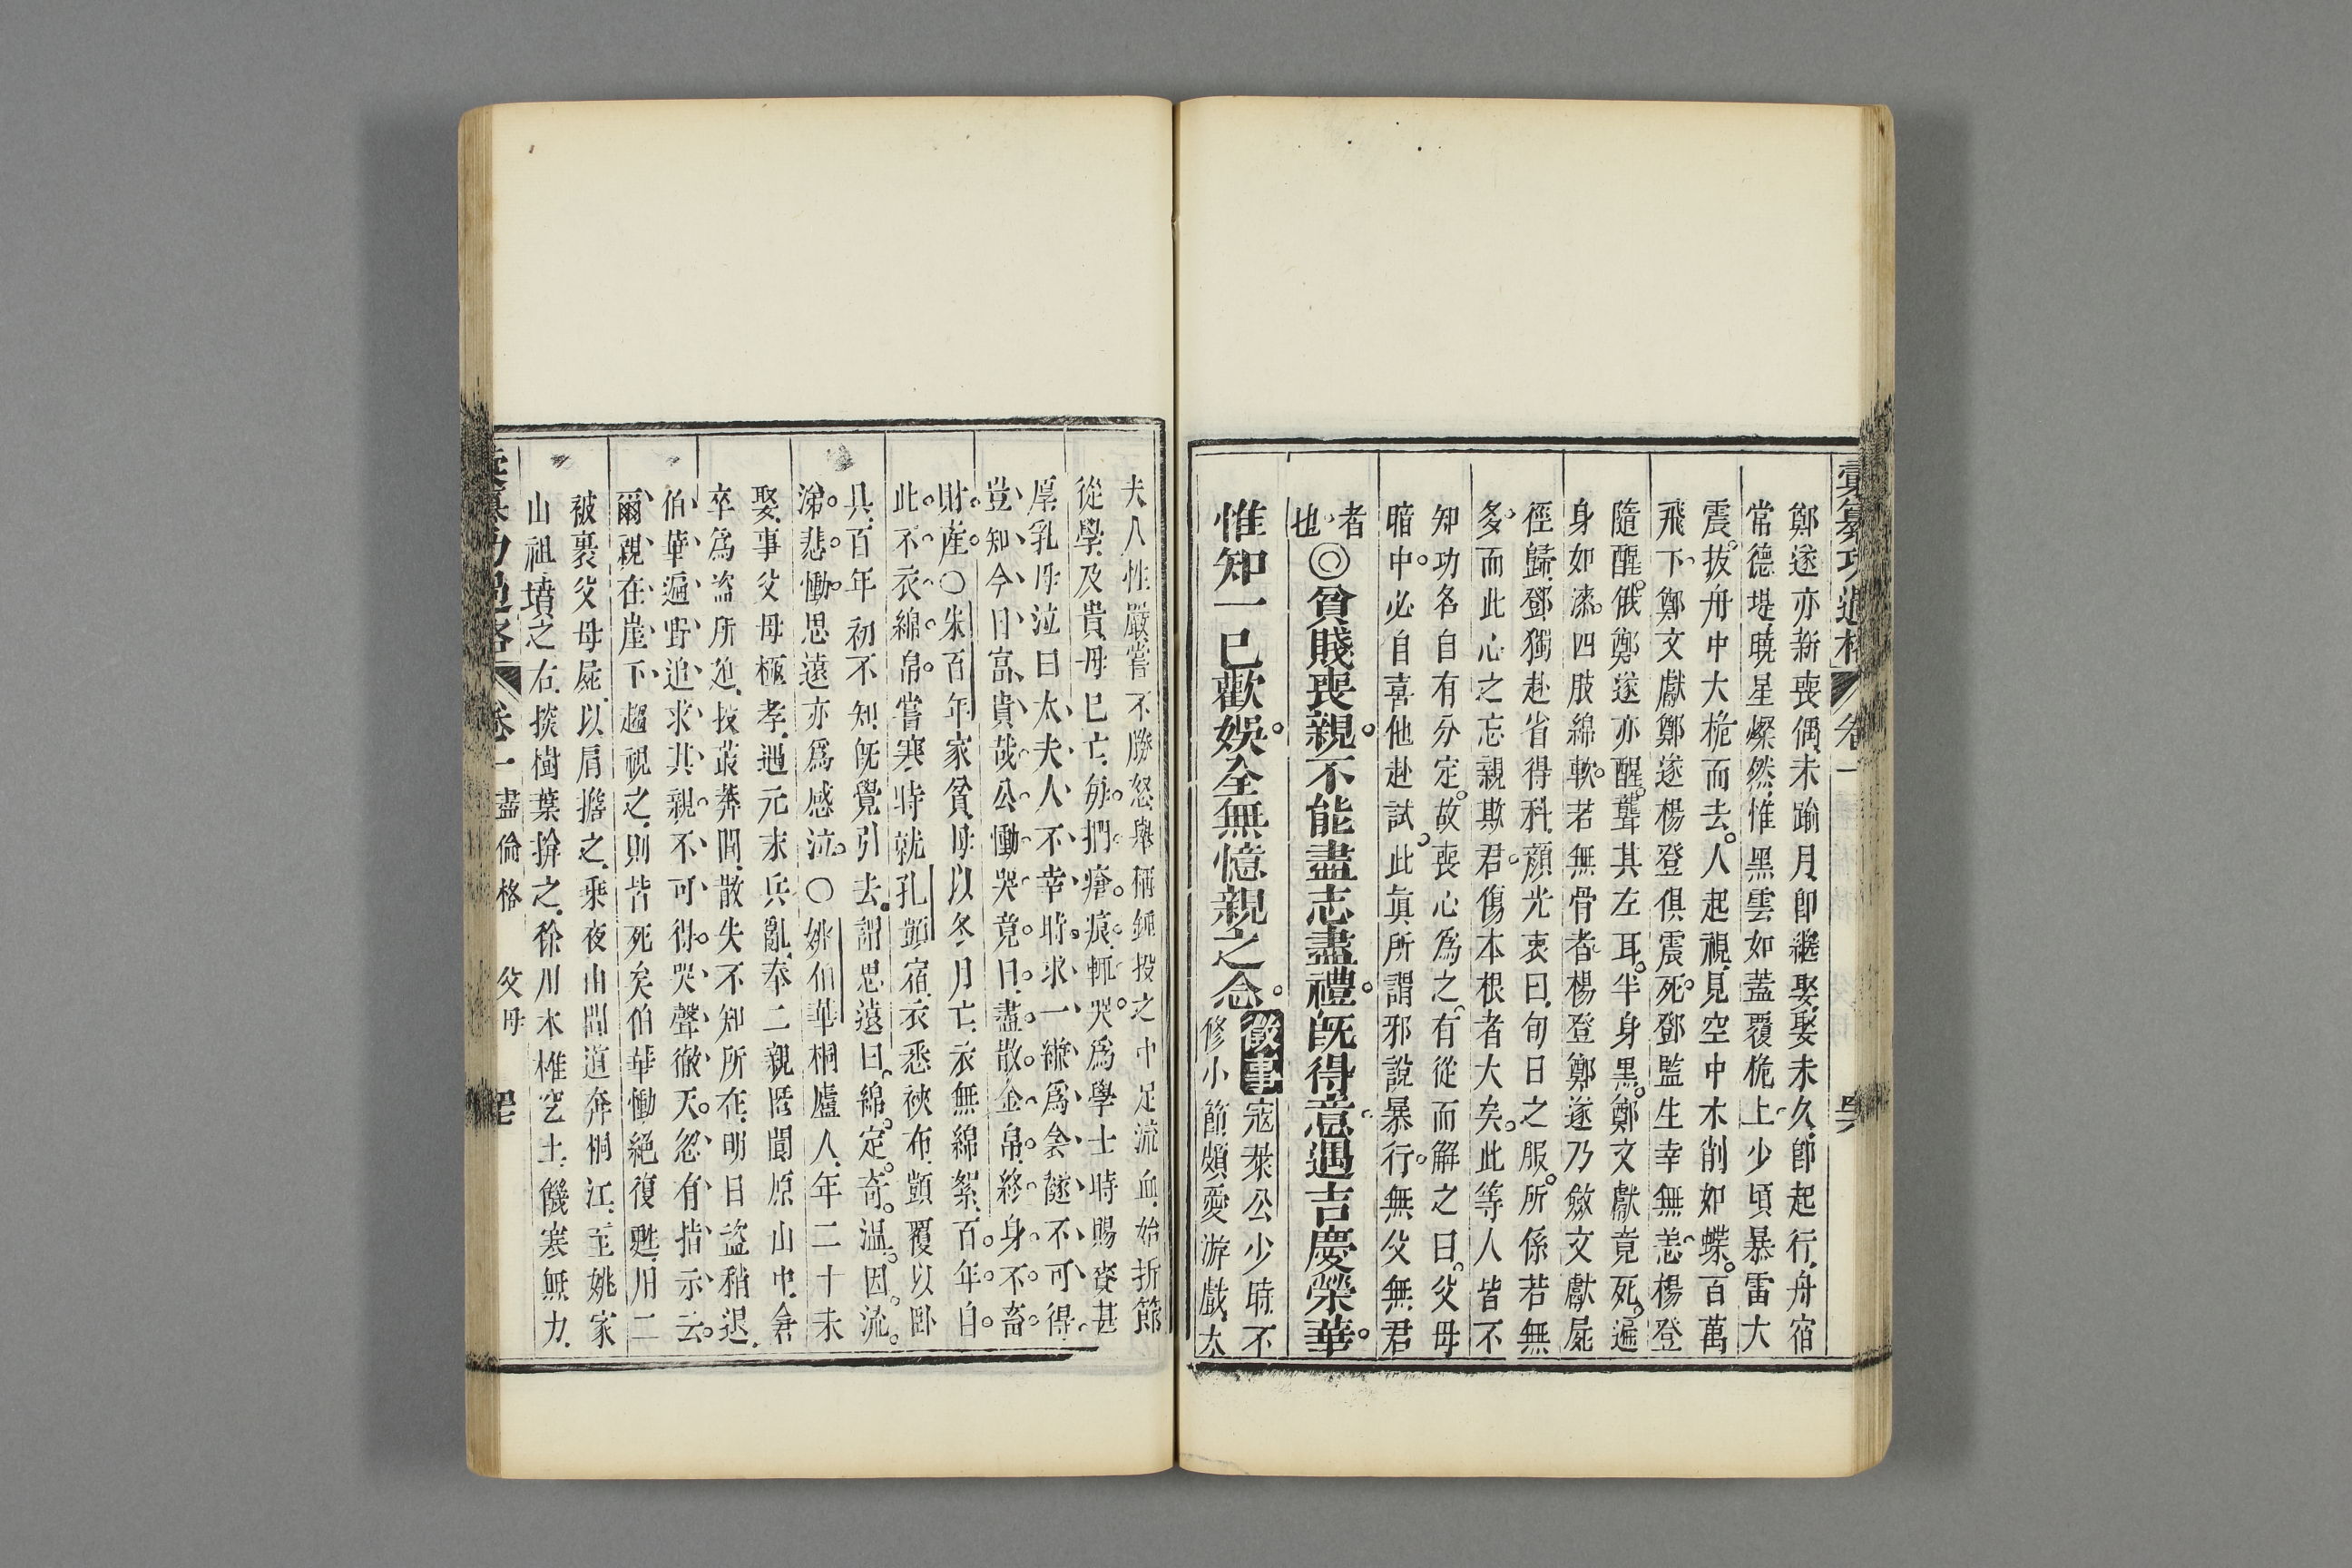 彙纂功過格 卷一
鄭遂亦新喪偶未踰月卽繼娶娶未久卽起行舟宿
常德堤曉星燦然惟黑雲如蓋覆桅上少頃暴雷大
震拔舟中大桅而去人起視見空中木削如蝶百萬
飛下鄭文獻鄭遂楊登俱震死鄧監生幸無恙楊登
隨醒俄鄭遂亦醒聾其左耳半身黑鄭文獻竟死遍
身如漆四肢綿軟若無骨者楊登鄭遂乃斂文獻屍
徑歸鄧獨赴省得科顏光衷曰旬日之服所係若無
多而此心之忘親欺君傷本根者大矣此等人皆不
知功名自有分定故喪心爲之有從而解之曰父母
暗中必自喜他赴試此眞所謂邪說暴行無父無君
者
也◎貧賤喪親不能盡志盡禮旣得意遇吉慶榮華
惟知一已歡娛全無憶親之念
徵事寇萊公少時不
修小節頗愛游戲太
夫人性嚴嘗不勝怒舉秤錘投之中足流血始折節
從學及貴母已亡每捫瘡痕輒哭爲學士時賜賚甚
厚乳母泣曰太夫人不幸時求一縑爲衾襚不可得
豈知今日富貴哉公慟哭竟日盡散金帛終身不畜
財産○朱百年家貧母以冬月亡衣無綿絮百年自
此不衣綿帛嘗寒時就孔顗宿衣悉裌布顗覆以臥
具百年初不知旣覺引去謂思遠曰綿定奇溫因流
涕悲慟思遠亦爲感泣○姚伯華桐廬人年二十未
娶事父母極孝遇元末兵亂奉二親匿閬原山中會
卒爲盜所迫投叢莽間散失不知所在明日盜稍退
伯華遍野追求其親不可得哭聲徹天忽有指示云
爾親在崖下趨視之則皆死矣伯華慟絕復甦用二
被裹父母屍以肩擔之乘夜由間道奔桐江至姚家
山祖墳之右掞樹葉揜之徐用木椎空土饑寒無力
彙纂功過格 卷一 盡倫格 父母